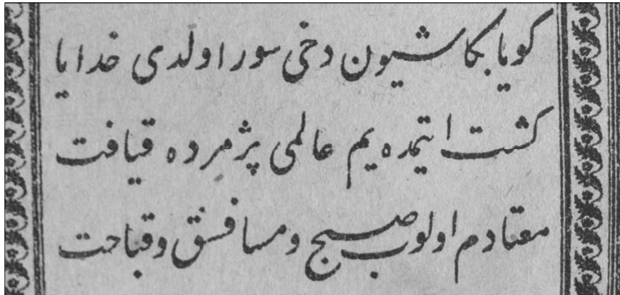 گویا بکا شیون دخی سور اولدی خدایا
کشت ایتمده یم عالمی پژمرده قیافت
معتادم اولوب صبح و مسا فسق و قباحت